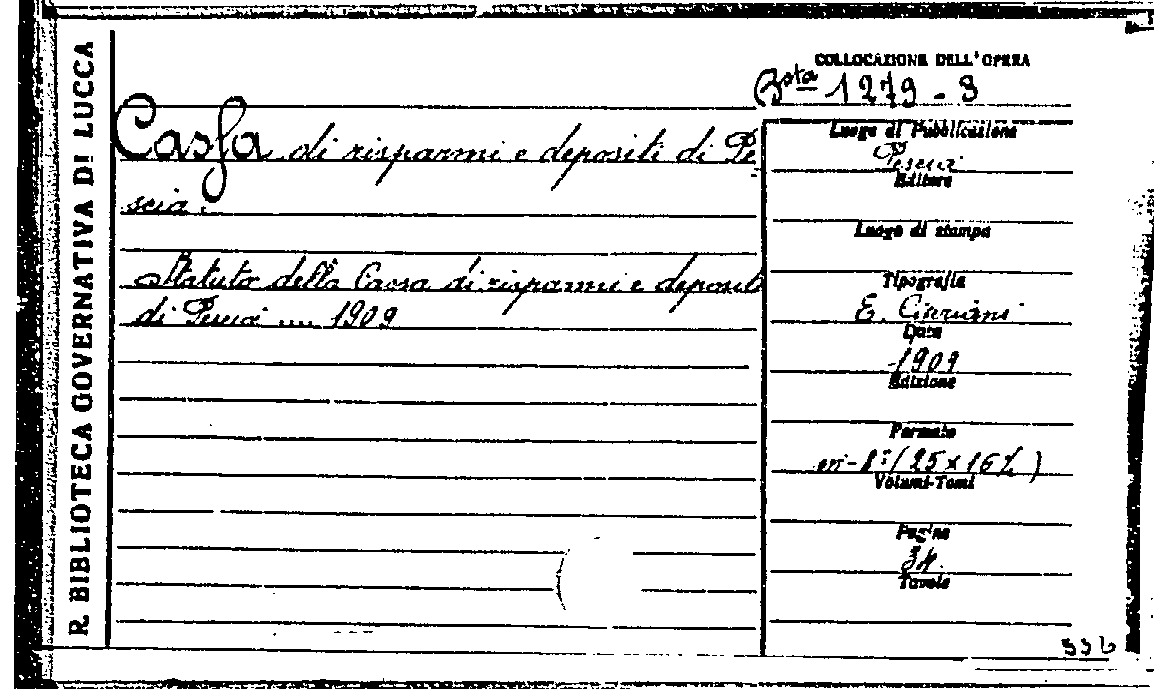 R. BIBLIOTECA GOVERNATIVA DI LUCCA
COLLOCAZIONE DELL'OPERA
Bsta 1279 - 3
Cassa di risparmi e depositi di Pe
scia.
Statuto della Cassa di risparmi e depositi
di Pescia .... 1909
Luogo di Pubblicazione
Pescia
Editore
Luogo di stampa
Tipografia
E. Cipriani
Data
1909
Edizione
Formato
in-8º (25 x 16½)
Volumi-Tomi
Pagine
34.
Tavole